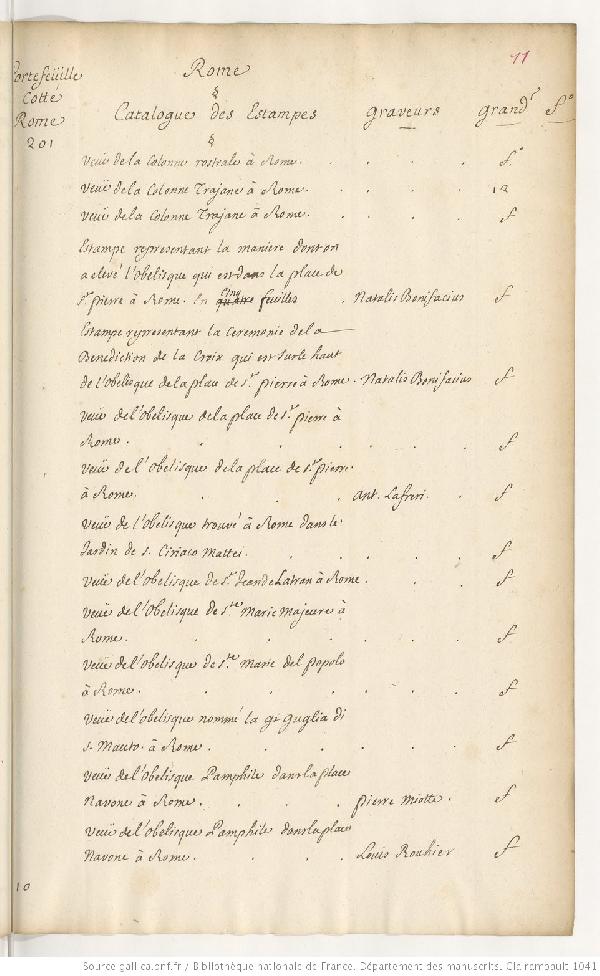 11
Portefeüille
Cotté
Rome
201
Rome
§
Catalogue des Estampes graveurs grandr fo
§
Veüe de la Colonne rostrale à Rome. . . . fo
Veüe de la Colonne Trajane à Rome. . . . 12
Veüe de la Colonne Trajane à Rome. . . . f
Estampe representant la maniere dont on
a elevé l'Obelisque qui est dans la place de
St. pierre à Rome. En quatre cinq feuilles . Natalis Bonifacius f
Estampe representant la Ceremonie de la
Benediction de la Croix qui est sur le haut
de l'Obelisque de la place de St. pierre à Rome. Natalis Bonifacius f
Veüe de l'Obelisque de la place de St. pierre à
Rome. . . . . . . f
Veüe de l'Obelisque de la place de St. pierre
à Rome. . . . Ant. Lafreri. . f
Veüe de l'Obelisque trouvé à Rome dans le
Jardin de S. Ciriaco Mattei. . . . . f
Veüe de l'Obelisque de St. Jean de Latran à Rome. . . f
Veüe de l'Obelisque de Ste. Marie Majeure à
Rome. . . . . . . f
Veüe de l'Obelisque de Ste. Marie del popolo
à Rome. . . . . . f
Veüe de l'Obelisque nommé la gi guglia di
S. Mauto. à Rome. . . . . . f
Veüe de l'Obelisque Pamphile dans la place
Navone à Rome. . . . pierre Miotte. f
Veüe de l'Obelisque Pamphile dans la place
Navone à Rome. . . . Louis Rouhier f
10
Source gallica.bnf.fr / Bibliothèque nationale de France. Département des manuscrits. Clairambault 1041